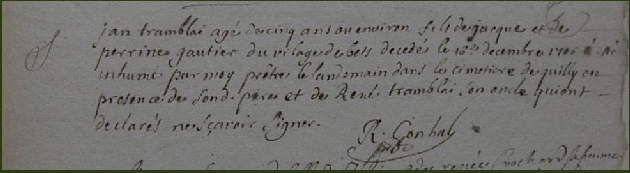 S
jan tramblai agé de cinq ans ou environ fils de jacque et de
perrine gautier du vilage de bets decedé le 16e decembre a été
inhumé par moy prêtre le landemain dans le cimetiere de quilly en
presence de son d. pere et de René tramblai son oncle qui ont
declarés ne sçavoir signer.
R. Gonhal
pbre
renée Crochard sa femme